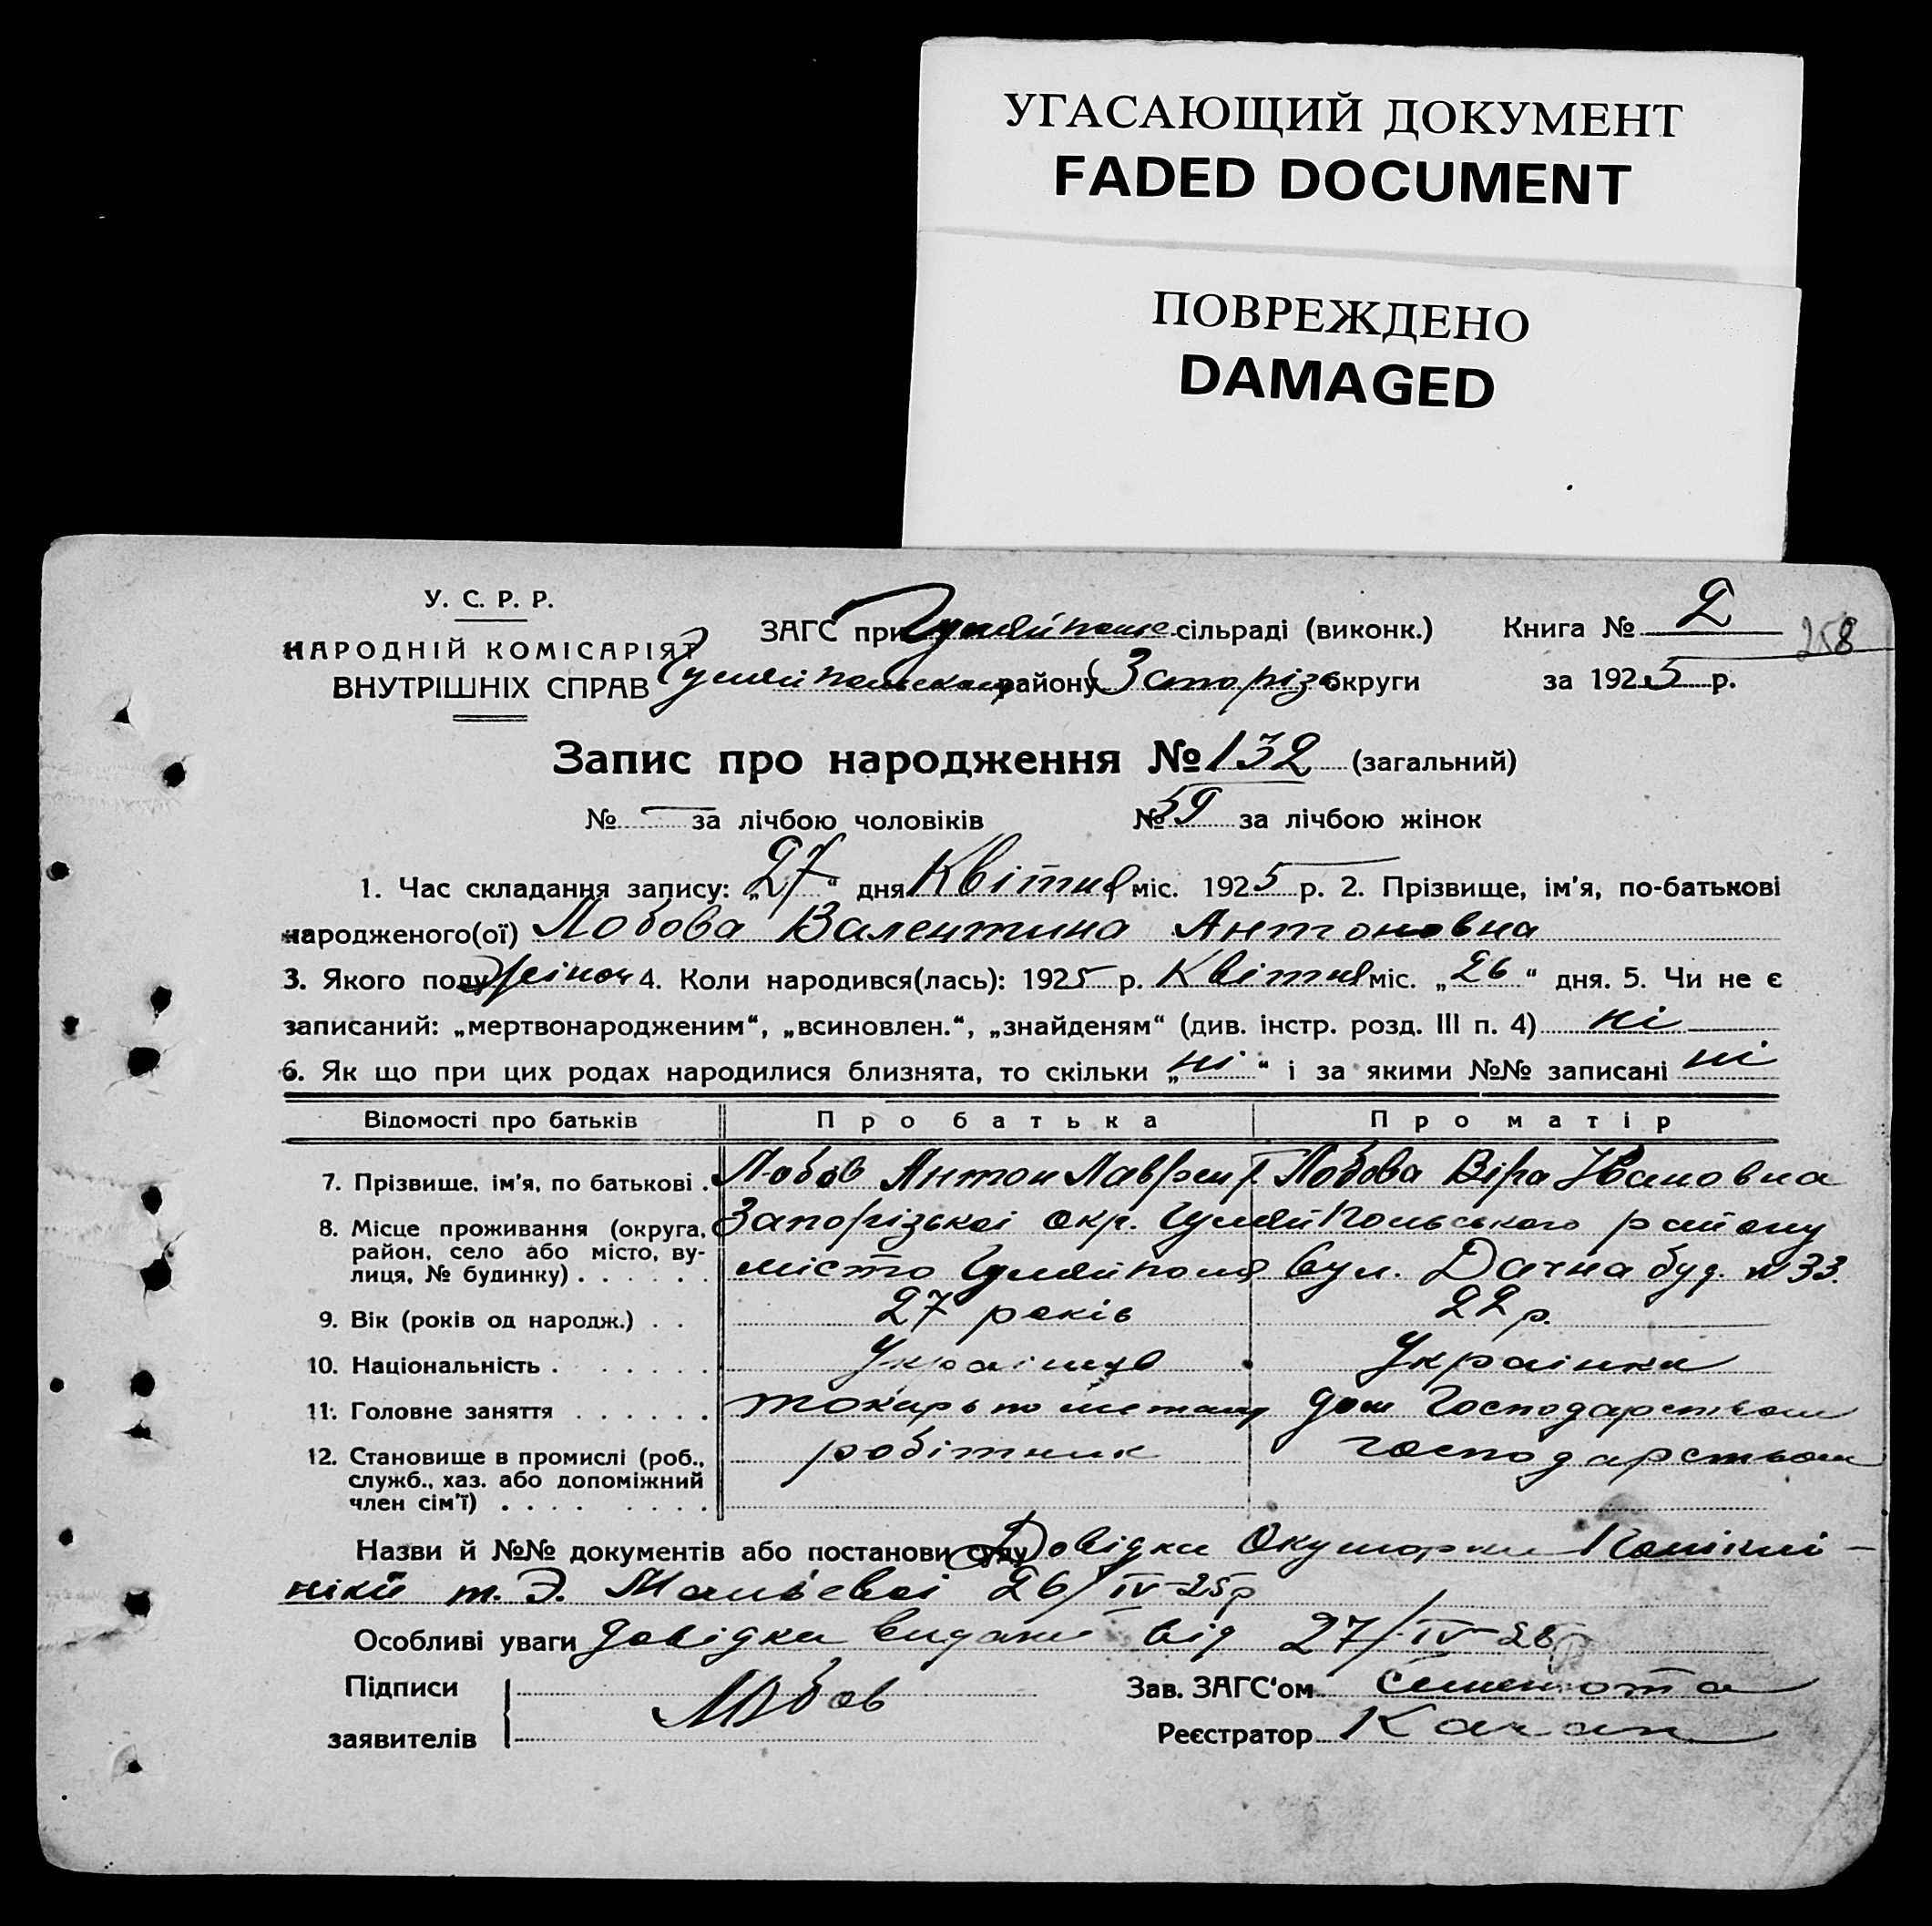 УГАСАЮЩИЙ ДОКУМЕНТ
FADED DOCUMENT
ПОВРЕЖДЕНО
DAMAGED
У. С. Р. Р.
НАРОДНІЙ КОМІСАРІЯТ
ВНУТРІШНІХ СПРАВ
ЗАГС при Гуляйпольс. сільраді (виконк.)
Книга № 2
258
Гуляйпольського району Запорізь округи
за 1925 р.
Запис про народження № 132 (загальний)
№ — за лічбою чоловіків № 59 за лічбою жінок
1. Час складання запису: „27“ дня Квітня міс. 1925 р. 2. Прізвище, ім'я, по-батькові
народженого(ої) Лобова Валентина Антоновна
3. Якого полу жіноч 4. Коли народився(лась): 1925 р. Квітня міс. „26“ дня. 5. Чи не є
записаний: „мертвонародженим“, „всиновлен.“, „знайденям“ (див. інстр. розд. III п. 4) ні
6. Як що при цих родах народилися близнята, то скільки „ні“ і за якими №№ записані ні
Відомості про батьків Про батька Про матір
7. Прізвище, ім'я, по батькові . Лобов Антон Лаврент. Лобова Віра Івановна
8. Місце проживання (округа, район, село або місто, вулиця, № будинку) . . . . . . Запорізькоі окр. Гуляйпольського району
місто Гуляйполя вул. Дачна буд. № 33.
9. Вік (років од народж.) . . 27 років 22 р.
10. Національність . . . . . . . Українцв Українка
11. Головне заняття . . . . . . токарь по металу дом Господарством
12. Становище в промислі (роб., служб., хаз. або допоміжний член сім'ї) . . . . . . . . робітник господарством
Назви й №№ документів або постанови суду Довідка Окушорки
т. Э. 26/IV-25р
Особливі уваги довідка видані від 27/IV-25р
Підписи
заявителів
Лобов
Зав. ЗАГС'ом
Реєстратор Качан